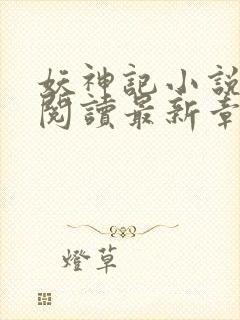 妖神記小說
閱讀最新章
燈草